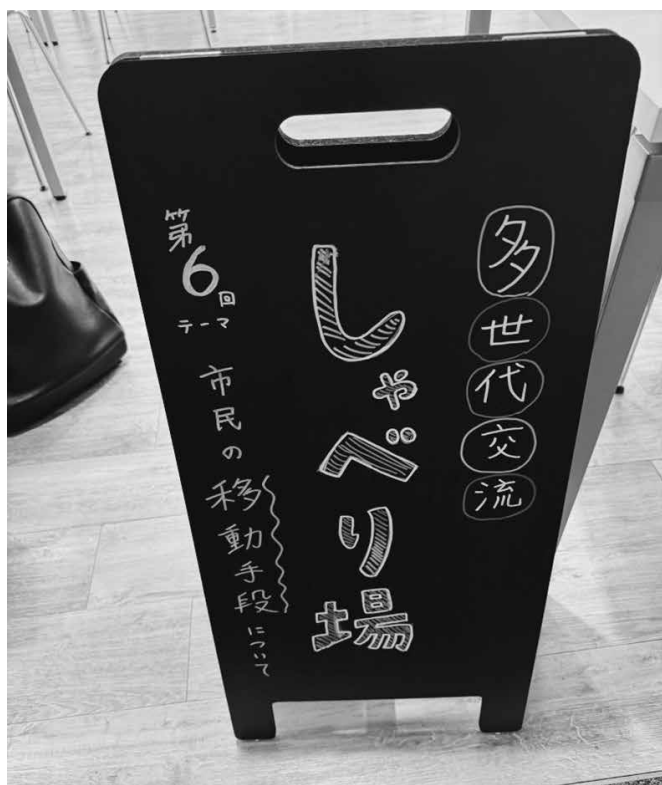 多世代交流
しゃべり場
第6回
テーマ
市民の移動手段について